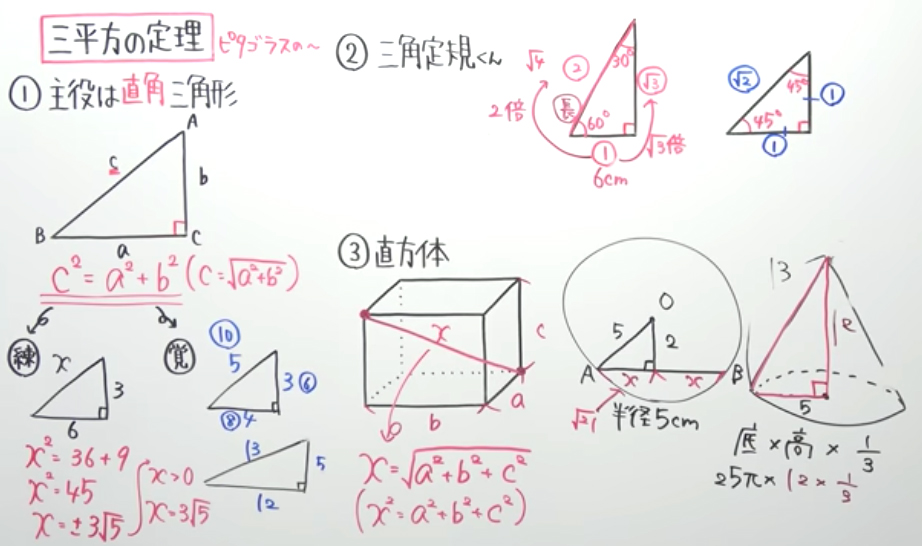 三平方の定理 ピタゴラスの～
① 主役は直角三角形
A
c
b
B
a
C
c² = a² + b² (c = √a²+b²)
練
x
3
6
x² = 36 + 9
x² = 45
x = ±3√5
x > 0
x = 3√5
覚
⑩
5
3 ⑥
⑧ 4
13
5
12
② 三角定規くん
√4
②
30°
√3
2倍
長
60°
①
√3倍
6cm
√2
45°
①
45°
①
③ 直方体
x
c
a
b
x = √a² + b² + c²
(x² = a² + b² + c²)
O
5
2
A
x
x
B
√21
半径5cm
13
12
5
底 × 高 × 1/3
25π × 12 × 1/3